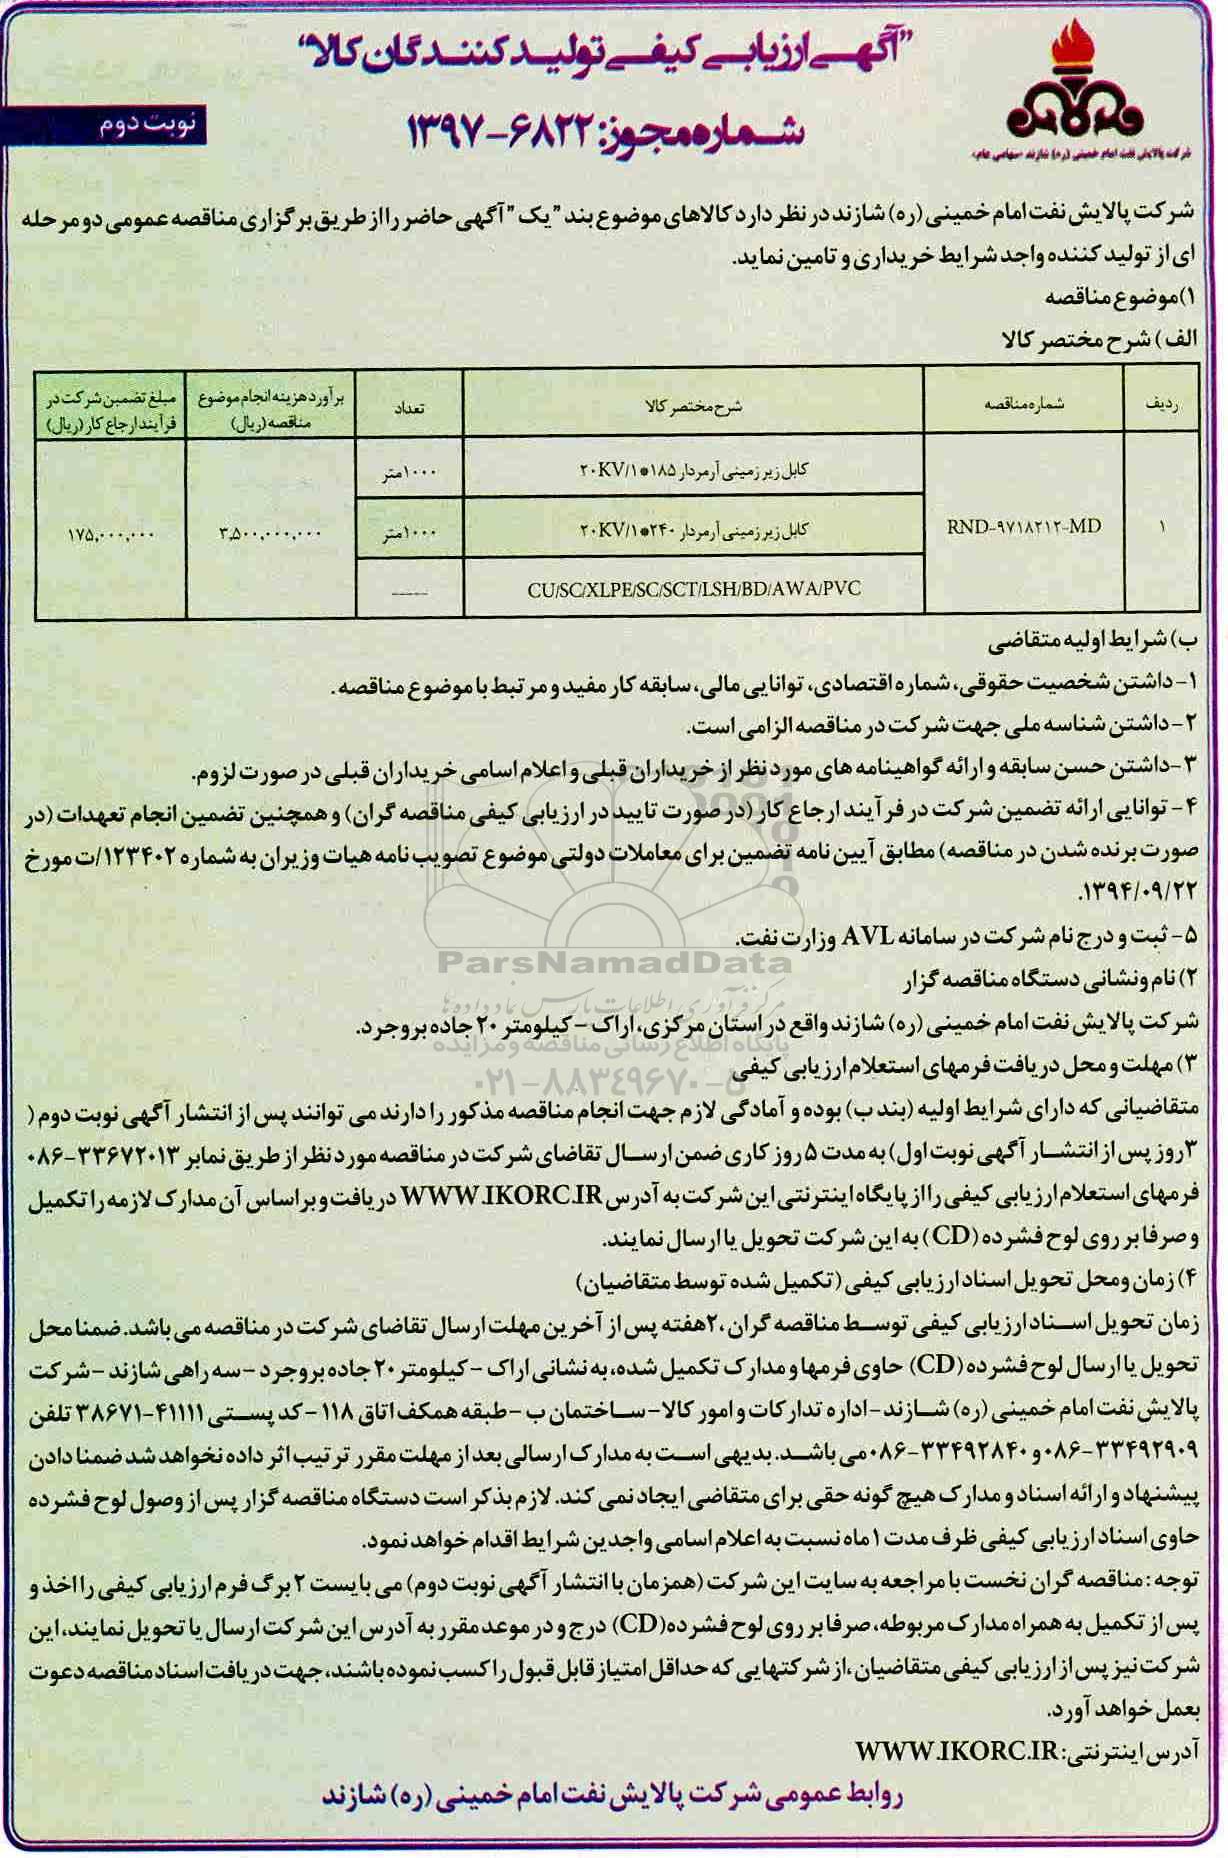 "آگهی ارزیابی کیفی تولید کنندگان کالا"
شماره مجوز: ۶۸۲۲-۱۳۹۷
نوبت دوم
شرکت پالایش نفت امام خمینی (ره) شازند «سهامی عام»
شرکت پالایش نفت امام خمینی (ره) شازند در نظر دارد کالاهای موضوع بند "یک" آگهی حاضر را از طریق برگزاری مناقصه عمومی دو مرحله
ای از تولید کننده واجد شرایط خریداری و تامین نماید.
۱) موضوع مناقصه
الف) شرح مختصر کالا
ردیف | شماره مناقصه | شرح مختصر کالا | تعداد | برآورد هزینه انجام موضوع مناقصه (ریال) | مبلغ تضمین شرکت در فرآیند ارجاع کار (ریال)
۱ | RND-۹۷۱۸۲۱۲-MD | کابل زیر زمینی آرمردار ۱۸۵*۲۰KV/۱ | ۱۰۰۰ متر | ۳,۵۰۰,۰۰۰,۰۰۰ | ۱۷۵,۰۰۰,۰۰۰
کابل زیر زمینی آرمردار ۲۴۰*۲۰KV/۱ | ۱۰۰۰ متر
CU/SC/XLPE/SC/SCT/LSH/BD/AWA/PVC | ------
ب) شرایط اولیه متقاضی
۱- داشتن شخصیت حقوقی، شماره اقتصادی، توانایی مالی، سابقه کار مفید و مرتبط با موضوع مناقصه.
۲- داشتن شناسه ملی جهت شرکت در مناقصه الزامی است.
۳- داشتن حسن سابقه و ارائه گواهینامه های مورد نظر از خریداران قبلی و اعلام اسامی خریداران قبلی در صورت لزوم.
۴- توانایی ارائه تضمین شرکت در فرآیند ارجاع کار (در صورت تایید در ارزیابی کیفی مناقصه گران) و همچنین تضمین انجام تعهدات (در
صورت برنده شدن در مناقصه) مطابق آیین نامه تضمین برای معاملات دولتی موضوع تصویب نامه هیات وزیران به شماره ۱۲۳۴۰۲/ت مورخ
۱۳۹۴/۰۹/۲۲.
۵- ثبت و درج نام شرکت در سامانه AVL وزارت نفت.
۲) نام ونشانی دستگاه مناقصه گزار
شرکت پالایش نفت امام خمینی (ره) شازند واقع در استان مرکزی، اراک - کیلومتر ۲۰ جاده بروجرد.
۳) مهلت و محل دریافت فرمهای استعلام ارزیابی کیفی
متقاضیانی که دارای شرایط اولیه (بند ب) بوده و آمادگی لازم جهت انجام مناقصه مذکور را دارند می توانند پس از انتشار آگهی نوبت دوم (
۳ روز پس از انتشار آگهی نوبت اول) به مدت ۵ روز کاری ضمن ارسال تقاضای شرکت در مناقصه مورد نظر از طریق نمابر ۳۳۶۷۲۰۱۳-۰۸۶
فرمهای استعلام ارزیابی کیفی را از پایگاه اینترنتی این شرکت به آدرس WWW.IKORC.IR دریافت و بر اساس آن مدارک لازمه را تکمیل
و صرفا بر روی لوح فشرده (CD) به این شرکت تحویل یا ارسال نمایند.
۴) زمان ومحل تحویل اسناد ارزیابی کیفی (تکمیل شده توسط متقاضیان)
زمان تحویل اسناد ارزیابی کیفی توسط مناقصه گران ،۲ هفته پس از آخرین مهلت ارسال تقاضای شرکت در مناقصه می باشد. ضمنا محل
تحویل یا ارسال لوح فشرده (CD) حاوی فرمها و مدارک تکمیل شده، به نشانی اراک - کیلومتر ۲۰ جاده بروجرد - سه راهی شازند - شرکت
پالایش نفت امام خمینی (ره) شازند - اداره تدارکات و امور کالا - ساختمان ب - طبقه همکف اتاق ۱۱۸ - کد پستی ۴۱۱۱۱-۳۸۶۷۱ تلفن
۳۳۴۹۲۹۰۹-۰۸۶ و ۳۳۴۹۲۸۴۰-۰۸۶ می باشد. بدیهی است به مدارک ارسالی بعد از مهلت مقرر ترتیب اثر داده نخواهد شد ضمنا دادن
پیشنهاد و ارائه اسناد و مدارک هیچ گونه حقی برای متقاضی ایجاد نمی کند. لازم بذکر است دستگاه مناقصه گزار پس از وصول لوح فشرده
حاوی اسناد ارزیابی کیفی ظرف مدت ۱ ماه نسبت به اعلام اسامی واجدین شرایط اقدام خواهد نمود.
توجه : مناقصه گران نخست با مراجعه به سایت این شرکت (همزمان با انتشار آگهی نوبت دوم) می بایست ۲ برگ فرم ارزیابی کیفی را اخذ و
پس از تکمیل به همراه مدارک مربوطه، صرفا بر روی لوح فشرده (CD) درج و در موعد مقرر به آدرس این شرکت ارسال یا تحویل نمایند، این
شرکت نیز پس از ارزیابی کیفی متقاضیان ،از شرکتهایی که حداقل امتیاز قابل قبول را کسب نموده باشند، جهت دریافت اسناد مناقصه دعوت
بعمل خواهد آورد.
آدرس اینترنتی: WWW.IKORC.IR
روابط عمومی شرکت پالایش نفت امام خمینی (ره) شازند
ParsNamadData
مرکز فرآوری اطلاعات پارس نماد داده ها
پایگاه اطلاع رسانی مناقصه و مزایده
۰۲۱-۸۸۳۴۹۶۷۰-۵